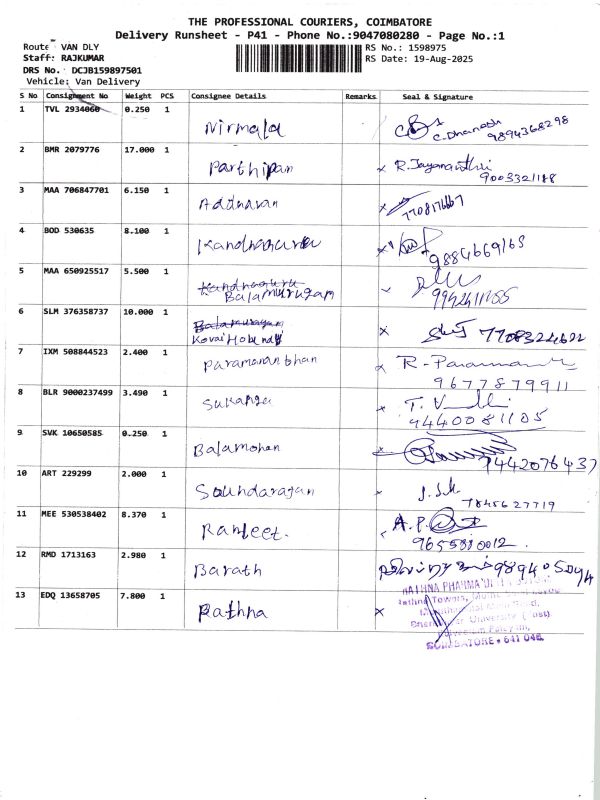 THE PROFESSIONAL COURIERS, COIMBATORE
Delivery Runsheet - P41 - Phone No.:9047080280 - Page No.:1
Route: VAN DLY
RS No.: 1598975
Staff: RAJKUMAR
RS Date: 19-Aug-2025
DRS No. DCJB159897501
Vehicle: Van Delivery
S No Consignment No Weight PCS Consignee Details Remarks Seal & Signature
1 TVL 2934060 0.250 1 Nirmala C. Dhanash 9894368298
2 BMR 2079776 17.000 1 Parthipan R. Jayamanthi 9003321118
3 MAA 706847701 6.150 1 7708176667
4 BOD 530635 8.100 1 Kandhaguru 9884669165
5 MAA 650925517 5.500 1 Kandhaguru
Balamurugan
6 SLM 376358737 10.000 1 Balamurugan
Kovai 7708324622
7 IXM 508844523 2.400 1 R-
9677879911
8 BLR 9000237499 3.490 1 Sukanya T.
9440081105
9 SVK 10650585 0.250 1 Balamohan 7442076437
10 ART 229299 2.000 1 Soundarajan
7845627719
11 MEE 530538402 8.370 1 Ranjeet. A.P.
9655810012.
12 RMD 1713163 2.980 1 Barath
13 EDQ 13658705 7.800 1 Rathna
RATHNA PHARMA
COIMBATORE - 641 046.